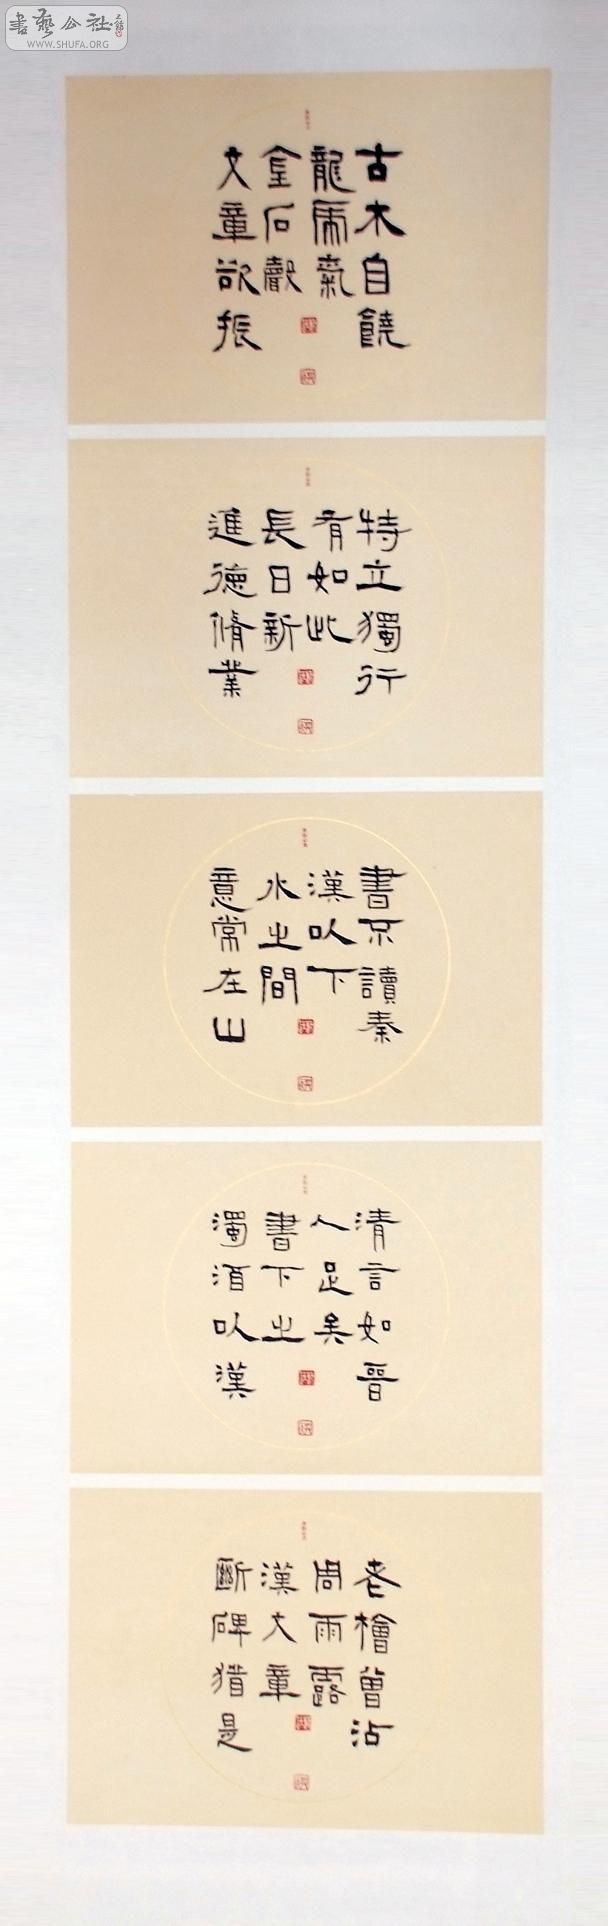 書藝公社
WWW.SHUFA.ORG
古木自饒
龍虎氣
文章欲振
金石聲
特立獨行
有如此
進德脩業
長日新
書不讀秦
漢以下
意常在山
水之間
清言如晉
人足矣
濁酒以漢
書下之
老檜曾沾
周雨露
斷碑猶是
漢文章